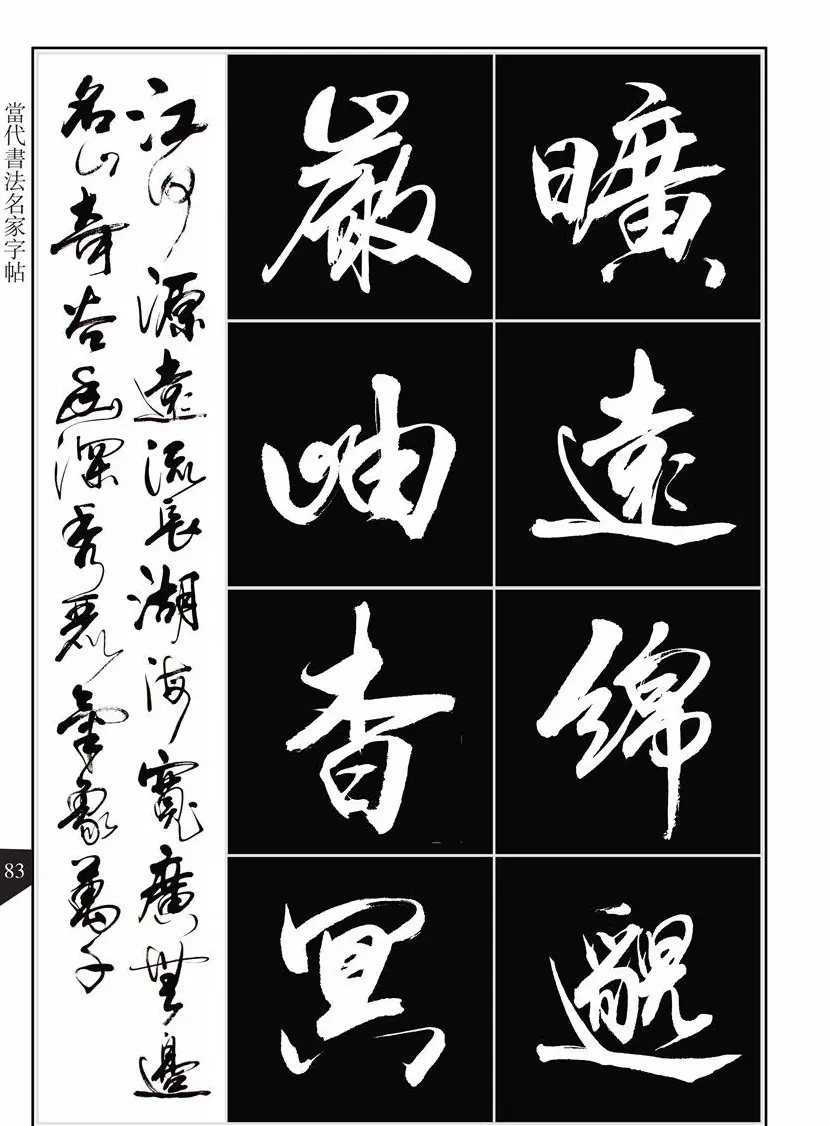 曠遠綿邈
巖岫杳冥
江河源遠流長湖海寬廣無邊
名山奇谷幽深秀麗氣象萬千
當代書法名家字帖
83